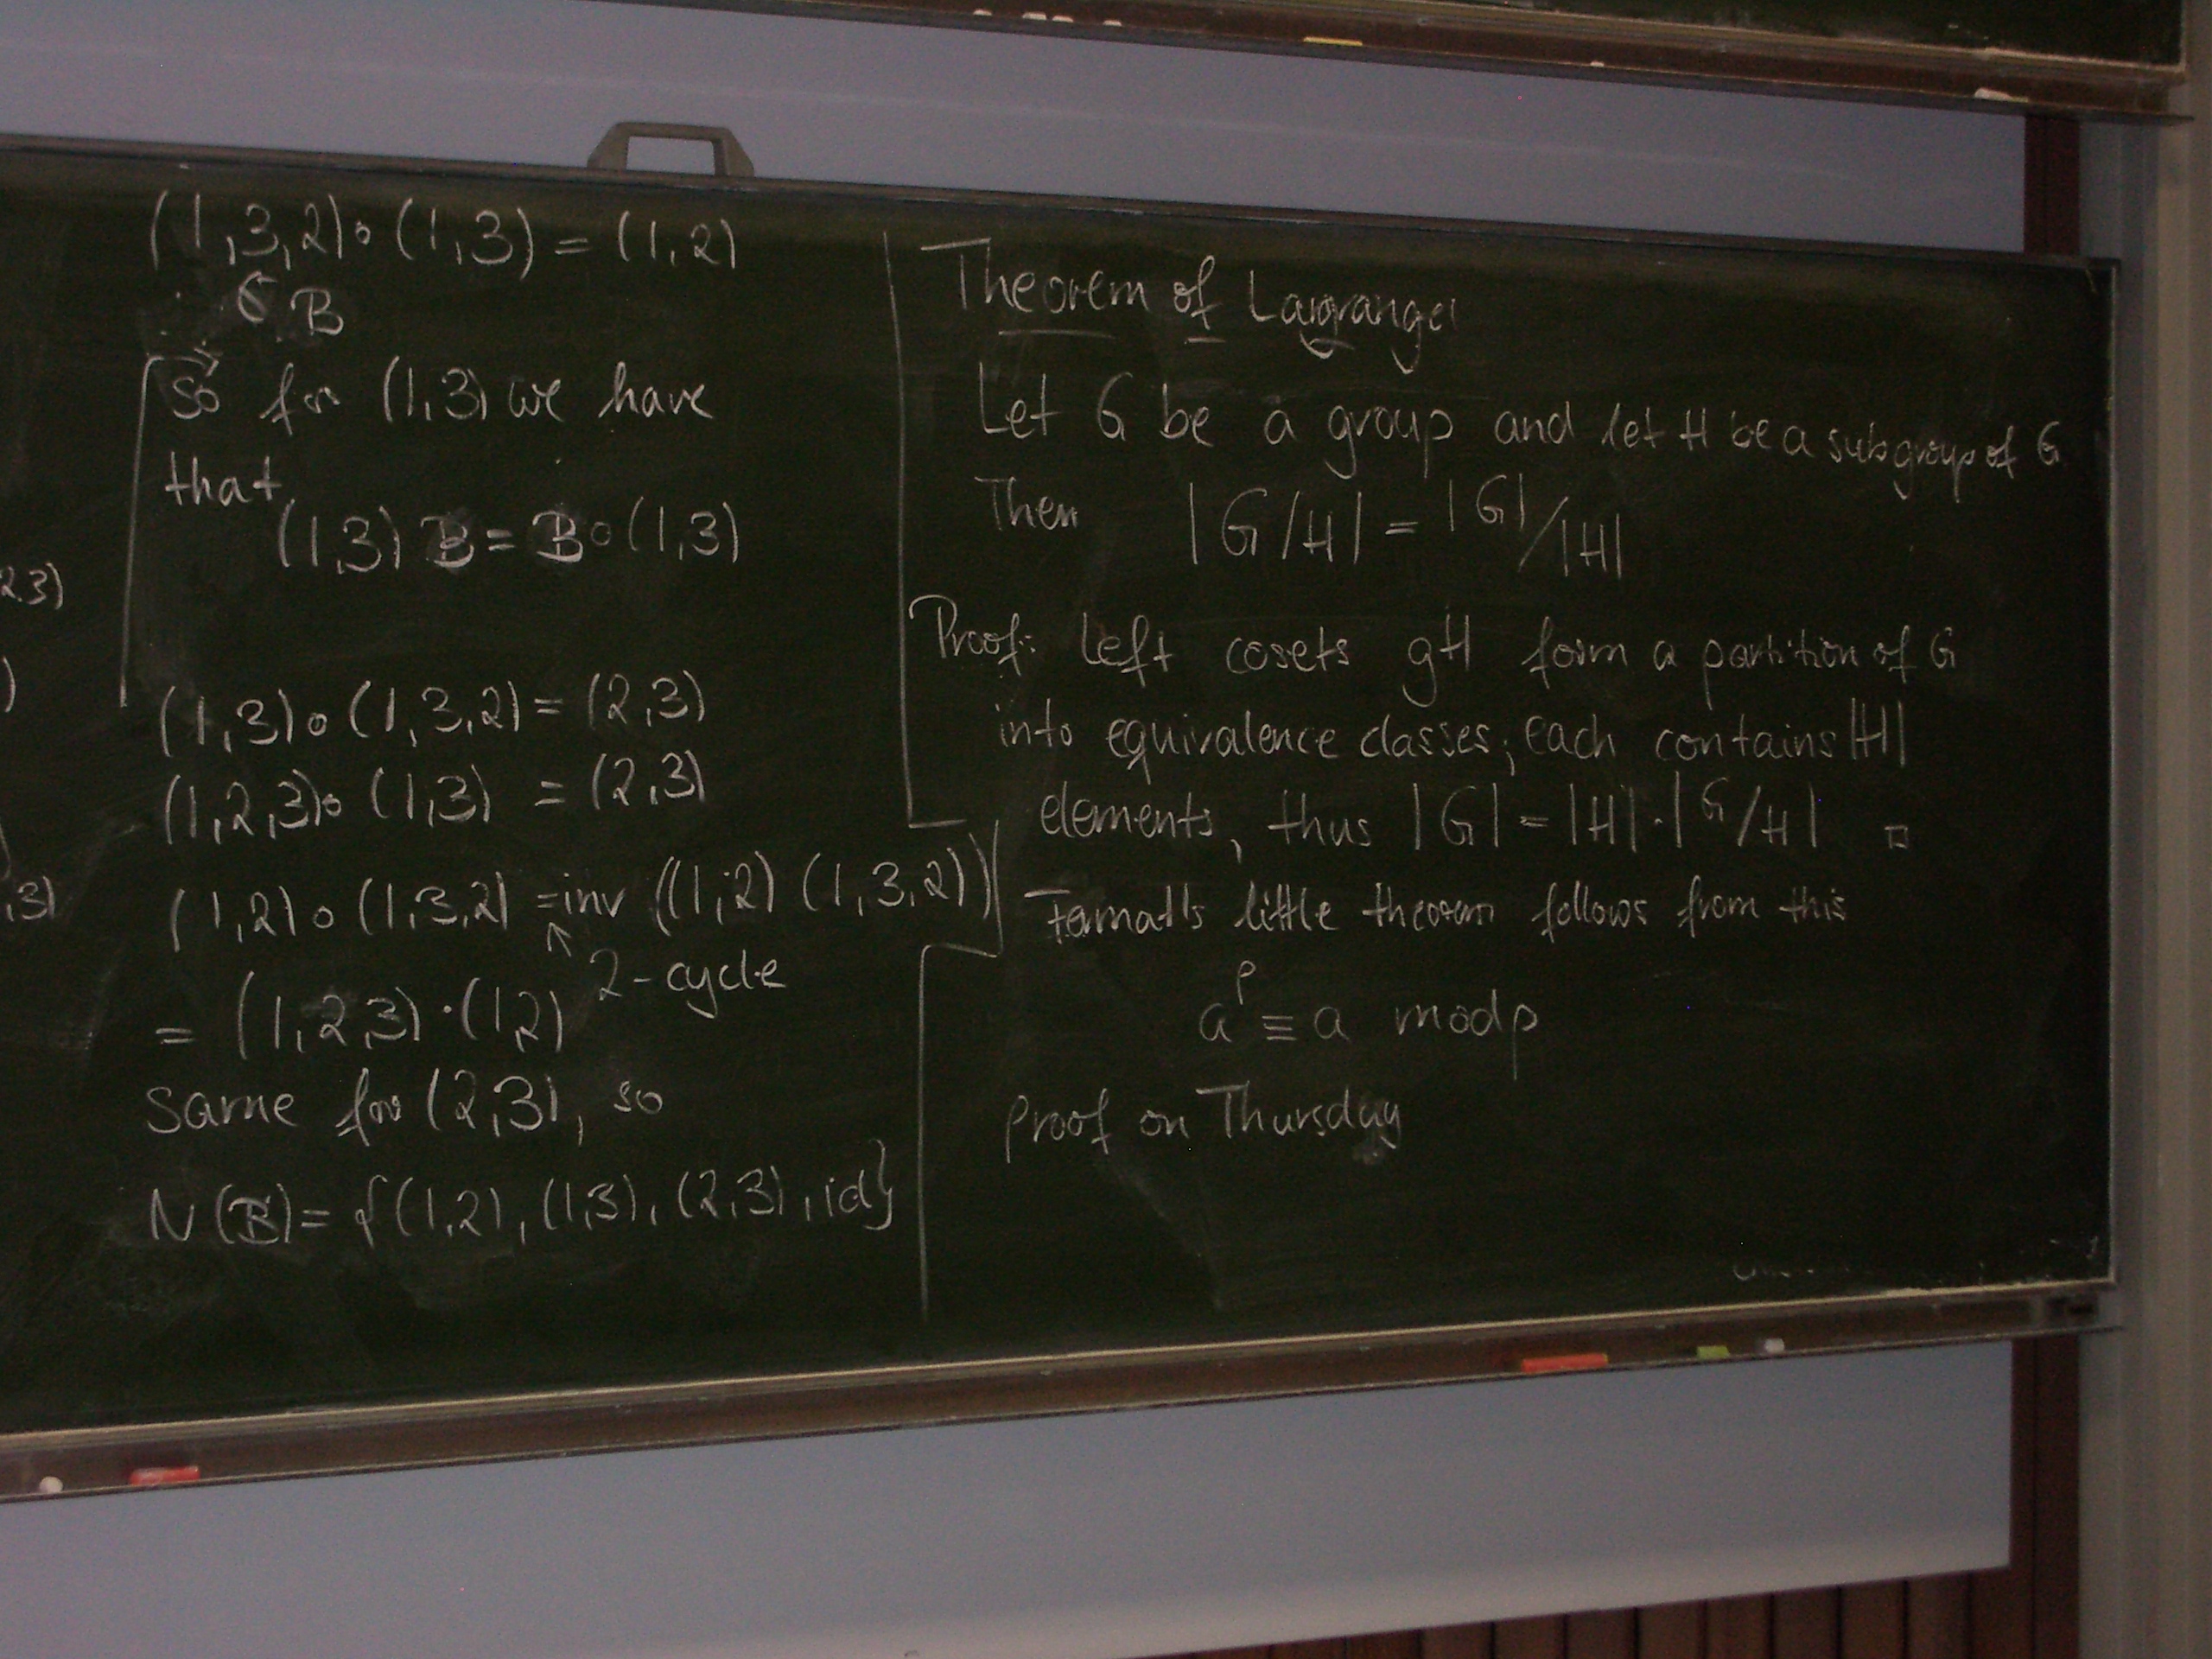 (1,3,2)∘(1,3) = (1,2)
∈ B
So for (1,3) we have
that
(1,3) B = B∘(1,3)
(1,3)∘(1,3,2) = (2,3)
(1,2,3)∘(1,3) = (2,3)
(1,2)∘(1,3,2) = inv ((1,2)(1,3,2))
↖ 2-cycle
= (1,2,3)·(1,2)
Same for (2,3), so
N(B) = {(1,2), (1,3), (2,3), id}
2,3)
)
)
,3)
Theorem of Lagrange
Let G be a group and let H be a subgroup of G
Then |G/H| = |G|/|H|
Proof: Left cosets gH form a partition of G
into equivalence classes; each contains |H|
elements, thus |G| = |H|·|G/H| □
Fermat's little theorem follows from this
a^p ≡ a mod p
Proof on Thursday